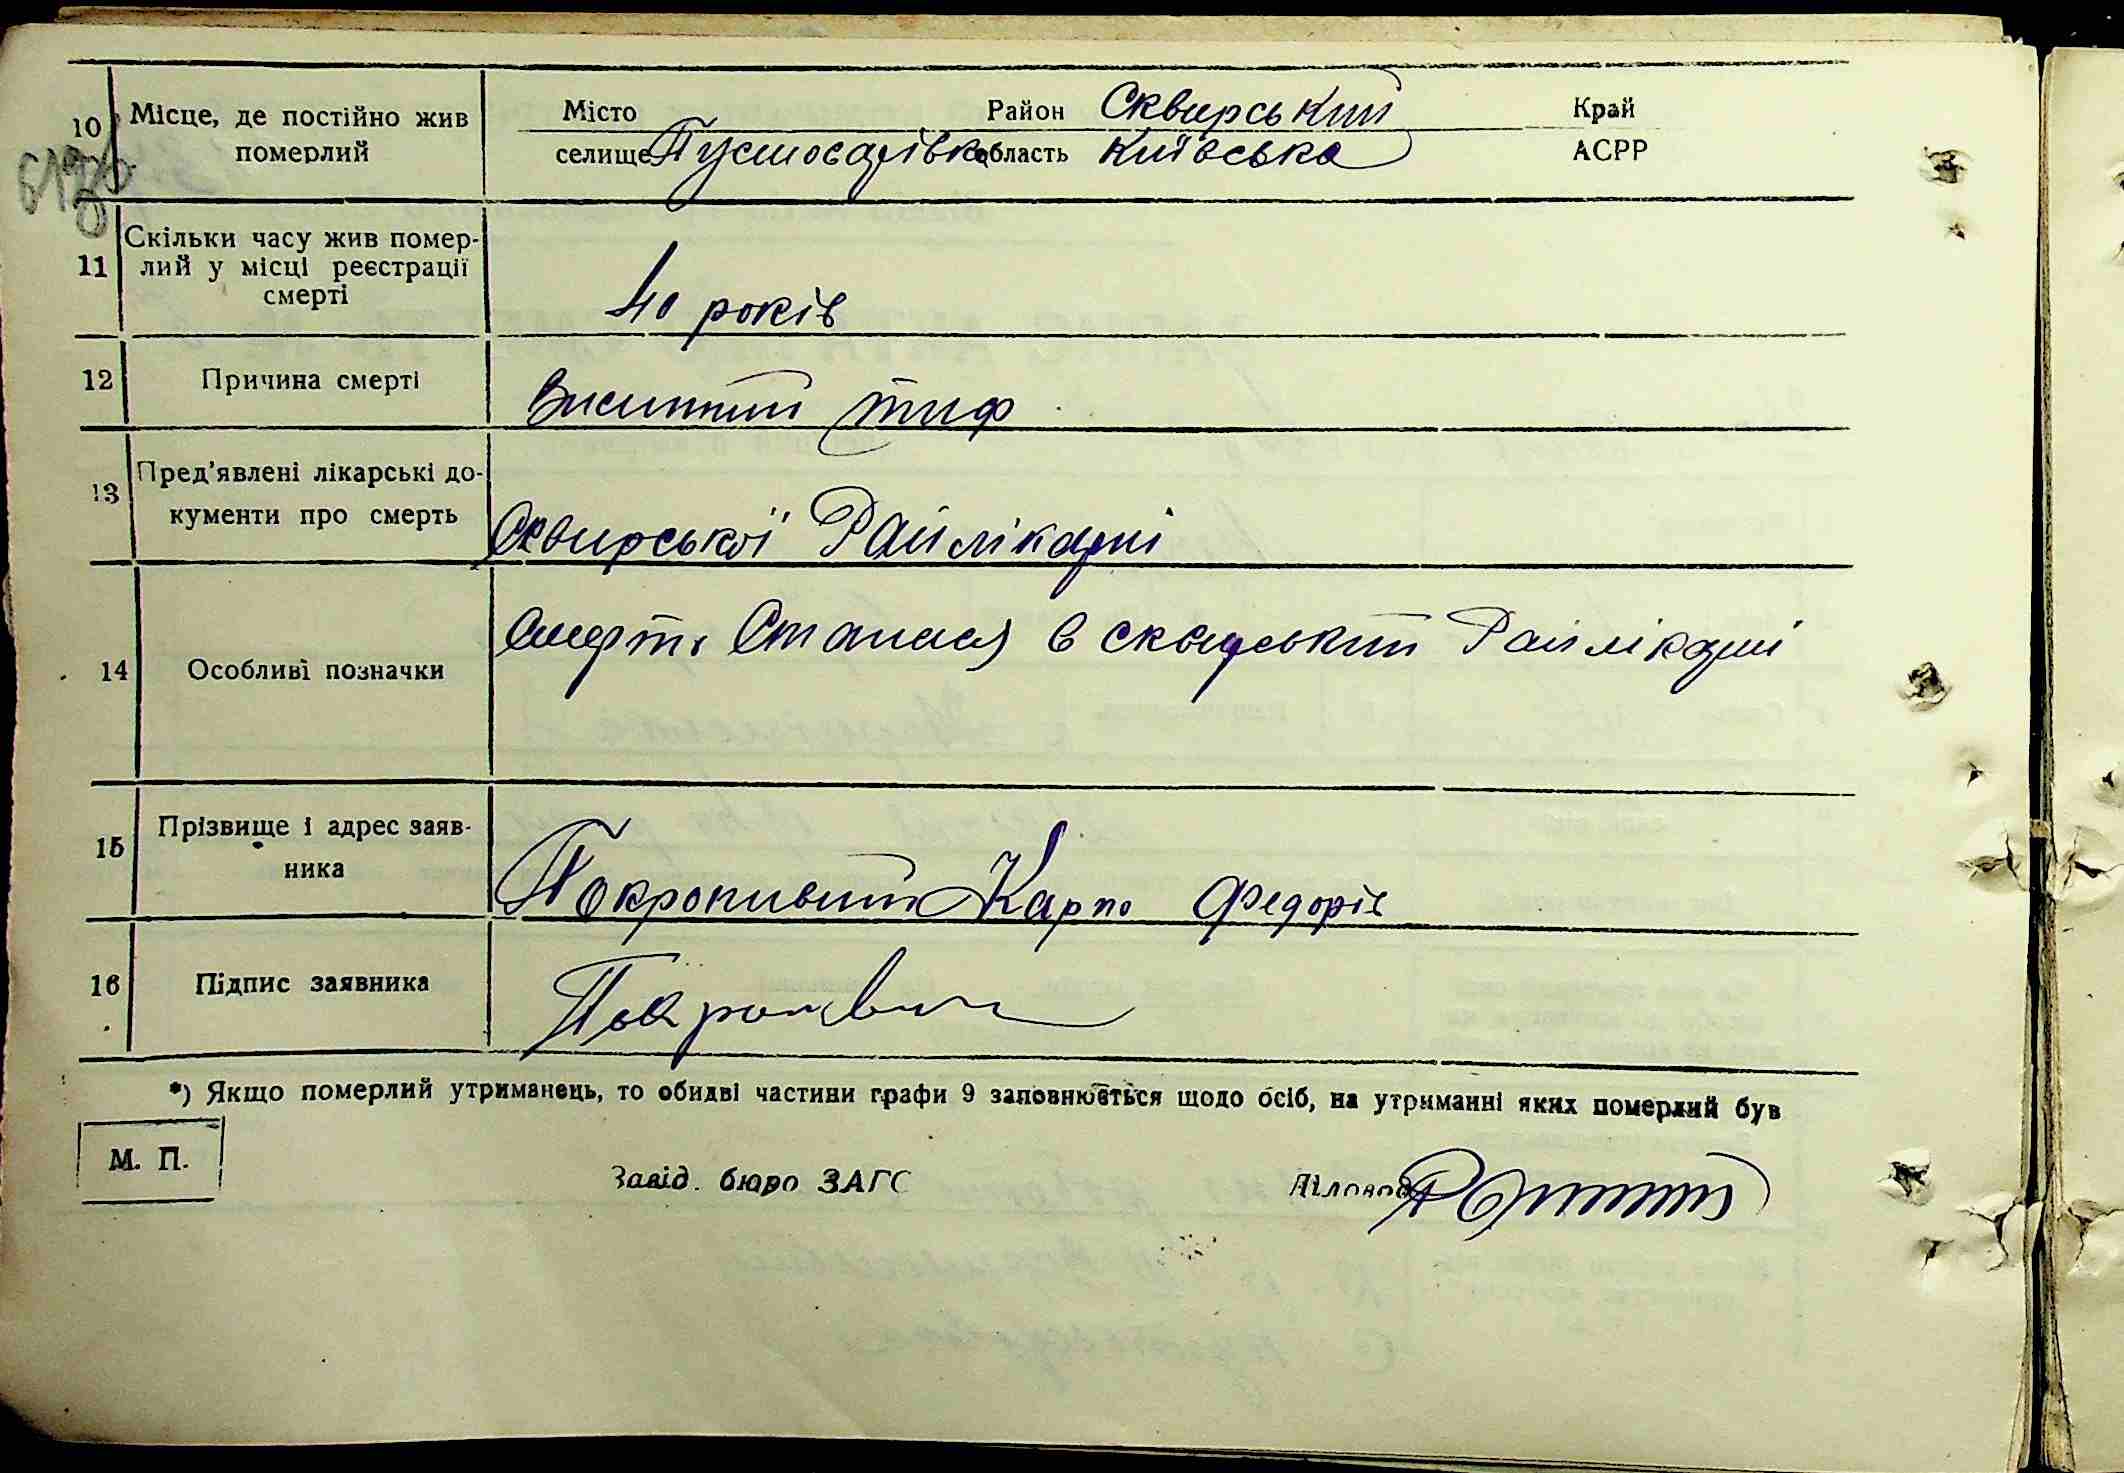 10 Місце, де постійно жив Місто Район Сквирський Край
померлий селище Пустоварівка область Київська АСРР
11 Скільки часу жив помер-
лий у місці реєстрації
смерті 40 років
12 Причина смерті Висипний тиф
13 Пред'явлені лікарські до-
кументи про смерть Сквирської Райлікарні
14 Особливі позначки Смерть Сталася в сквирський Райлікарні
15 Прізвище і адрес заяв-
ника Покропивний Карпо Федорів
16 Підпис заявника
*) Якщо померлий утриманець, то обидві частини графи 9 заповнюється щодо осіб, на утриманні яких померлий був
М. П. Завід. бюро ЗАГС Діловод